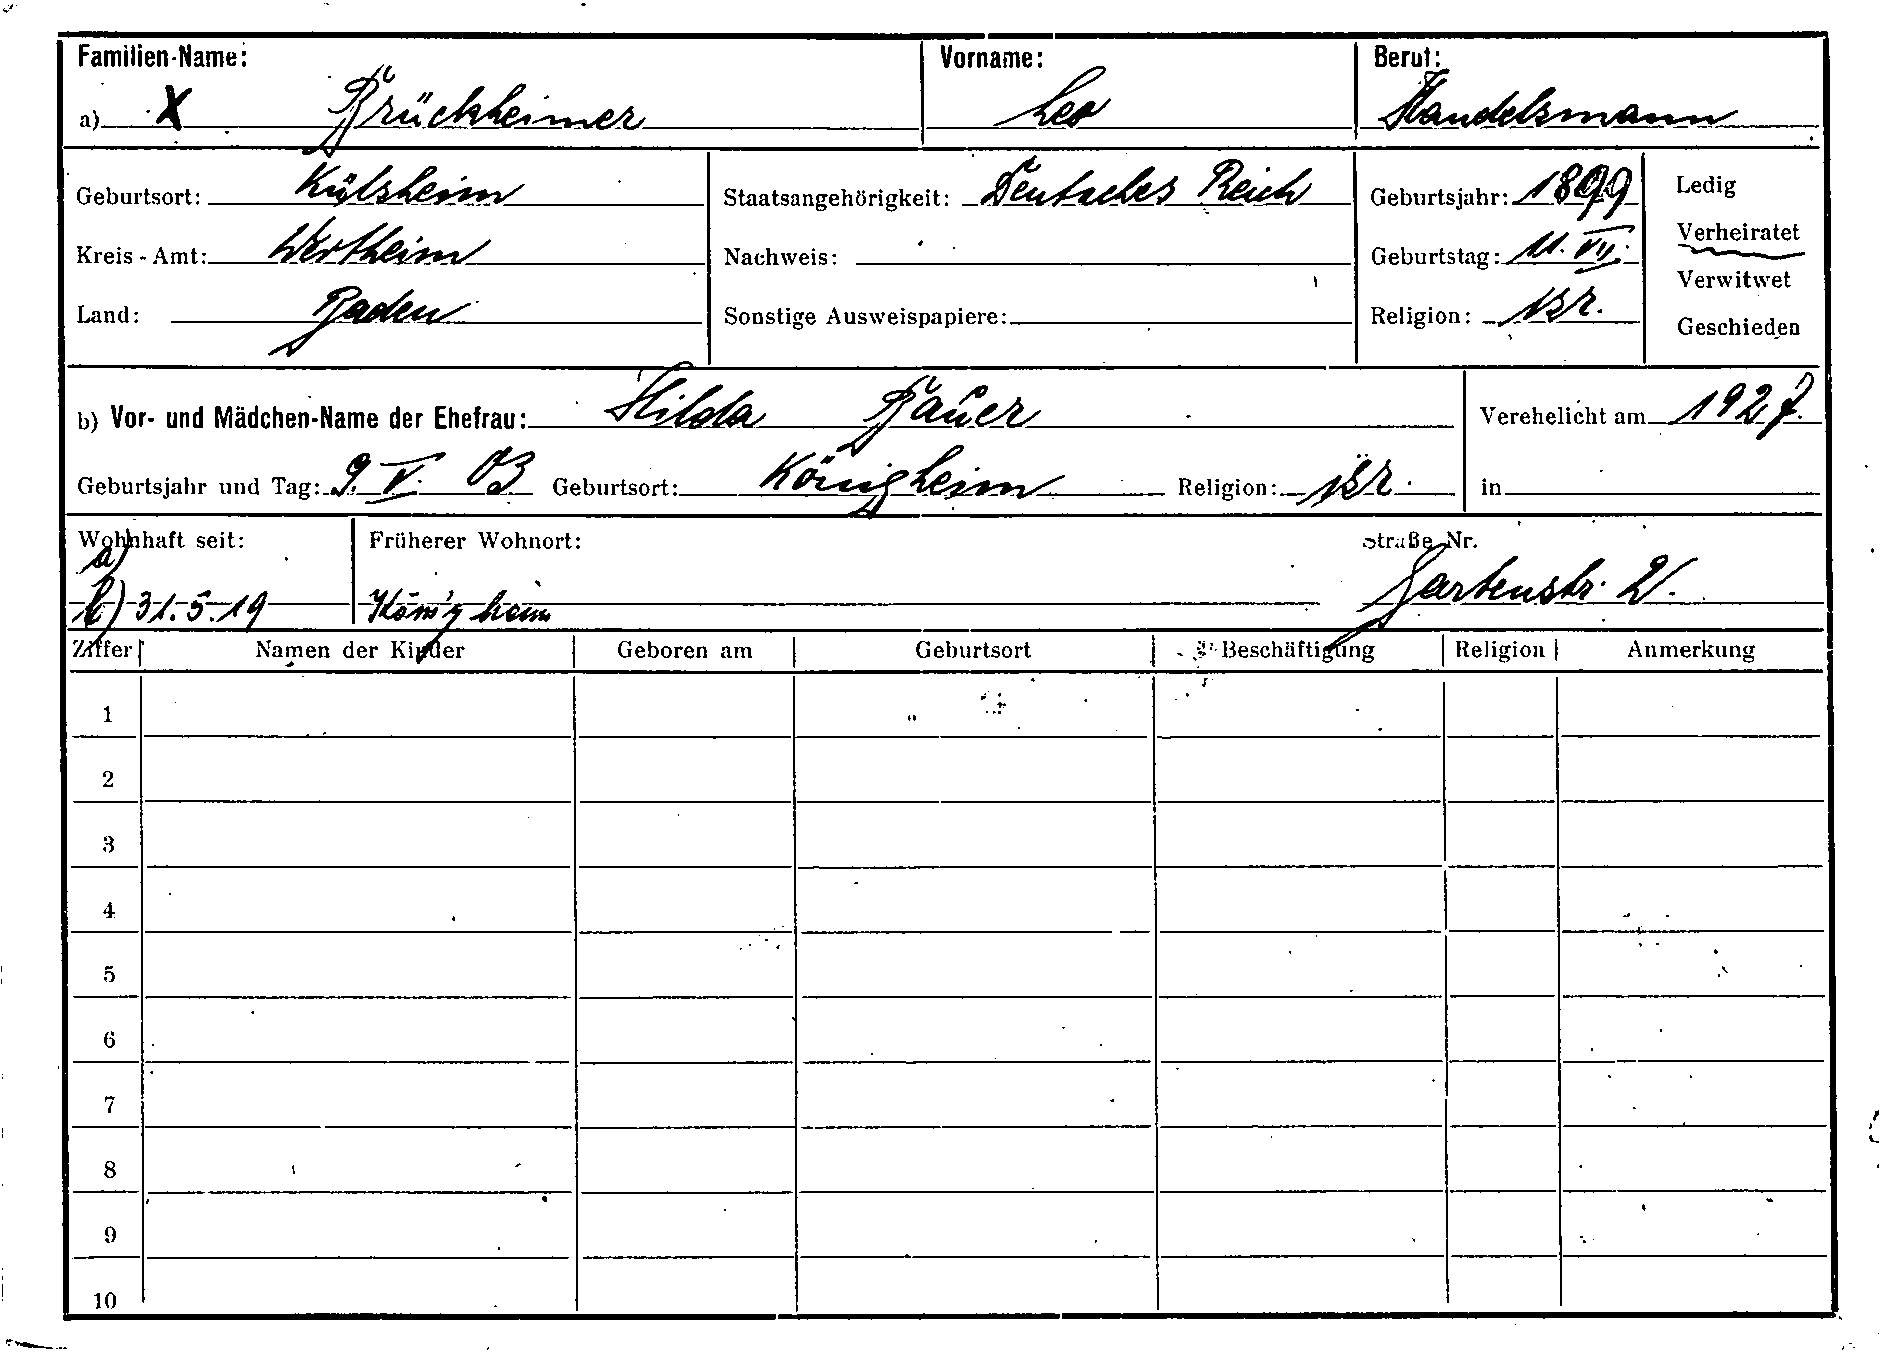 Familien-Name: Vorname: Beruf:
a) X Brückheimer Leo Handelsmann
Geburtsort: Külsheim Staatsangehörigkeit: Deutsches Reich Geburtsjahr: 1899 Ledig
Kreis-Amt: Wertheim Nachweis: Geburtstag: 11. VII. Verheiratet
Land: Baden Sonstige Ausweispapiere: Religion: isr. Verwitwet
Geschieden
b) Vor- und Mädchen-Name der Ehefrau: Hilda Bauer Verehelicht am 1927.
Geburtsjahr und Tag: 9. V. 03 Geburtsort: Königheim Religion: isr. in
Wohnhaft seit: Früherer Wohnort: Straße Nr.
a)
b) 31.5.19 Königheim Gartenstr. 21.
Ziffer Namen der Kinder Geboren am Geburtsort Beschäftigung Religion Anmerkung
1
2
3
4
5
6
7
8
9
10